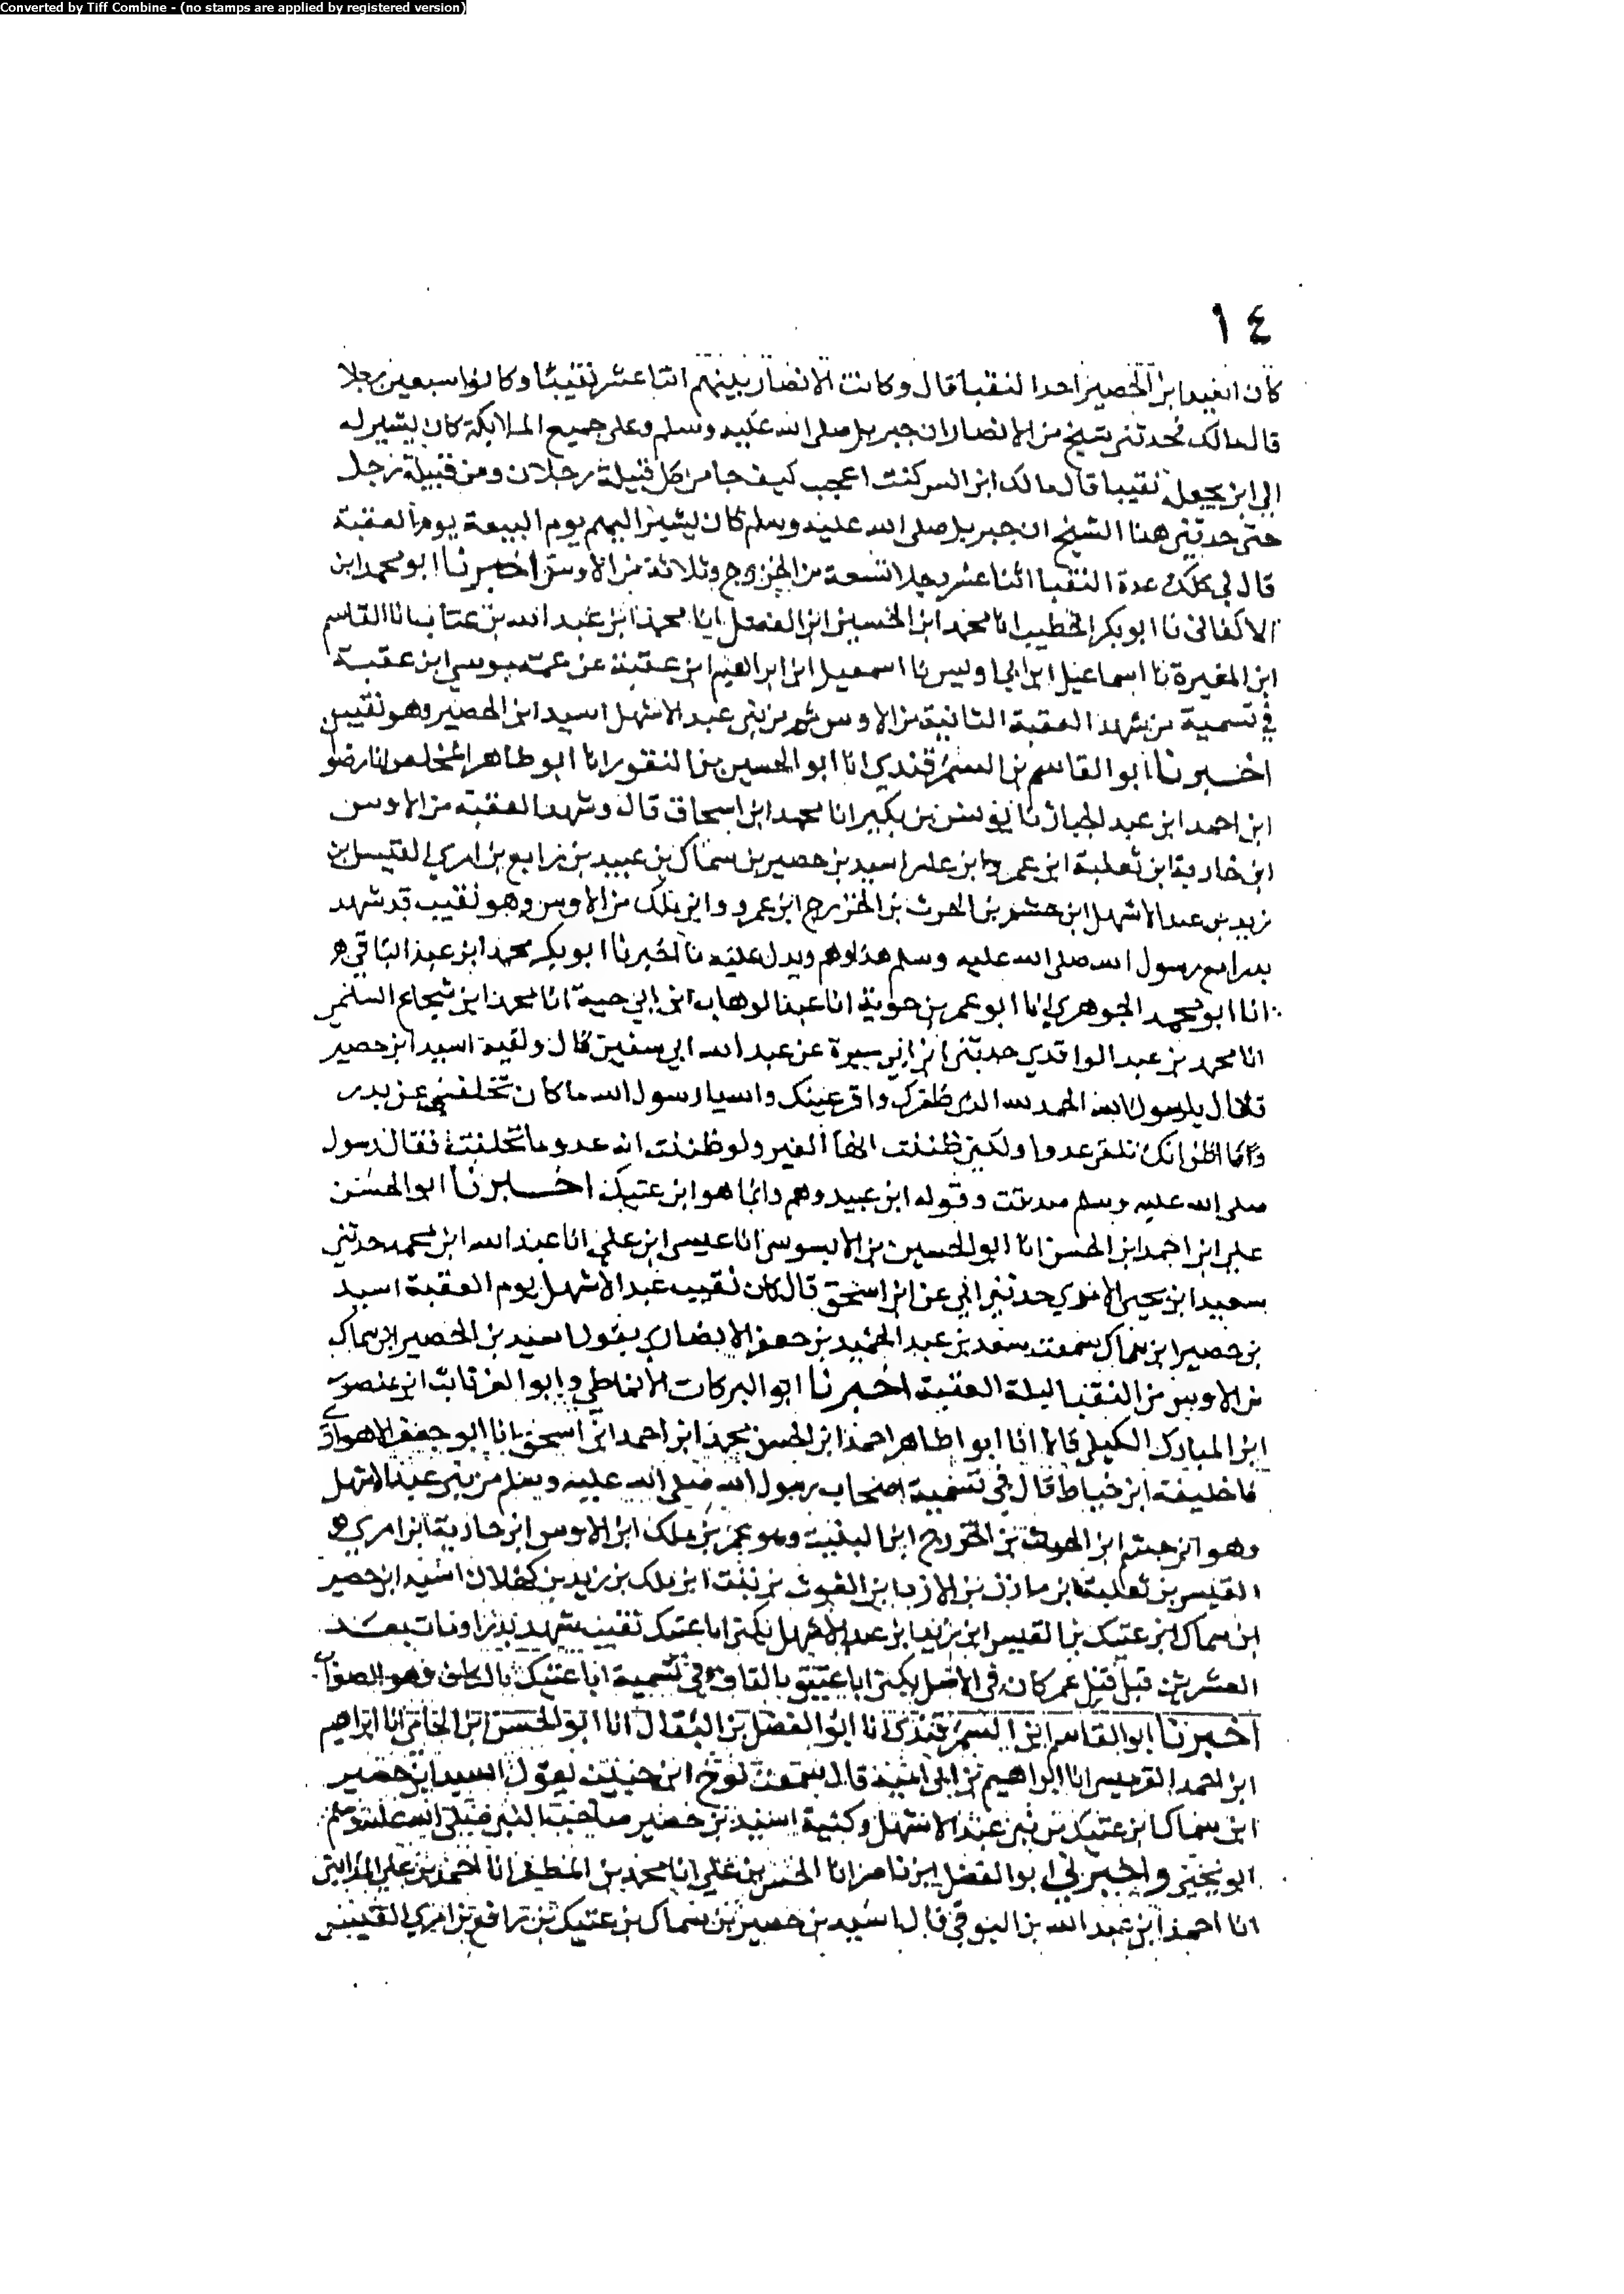 Converted by Tiff Combine - (no stamps are applied by registered version)
١٤
كان اسيد ابن الحضير احد النقبا قال وكانت الانصار بينهم اثنا عشر نقيبا وكانوا سبعين رجلا
قال مالك فحدثني شيخ من الانصار ان جبريل صلى الله عليه وسلم وعلى جميع الملايكة كان يشير له
الى ابن يجعله نقيبا قال مالك ابن انس كنت اعجب كيف جا من كل قبيلة رجلان ومن قبيلة رجل
حتى حدثني هذا الشيخ ان جبريل صلى الله عليه وسلم كان يشير اليهم يوم البيعة يوم العقبة
قال لي ملك عدة النقبا اثنا عشر رجلا تسعة من الخزرج وثلاثة من الاوس اخبرنا ابو محمد ابن
الاكفاني نا ابو بكر الخطيب انا محمد ابن الحسين ابن الفضل انا محمد ابن عبد الله بن عتاب انا القاسم
ابن المغيرة نا اسماعيل ابن ابي اويس نا اسمعيل ابن ابراهيم ابن عقبة عن عمه موسي ابن عقبة
في تسمية من شهد العقبة الثانية من الاوس ثم من بني عبد الاشهل اسيد ابن الحضير وهو نقيب
اخبرنا ابو القاسم بن السمرقندي انا ابو الحسين بن النقور انا ابو طاهر المخلص انا رضو
ابن احمد ابن عبد الجبار نا يونس بن بكير انا محمد ابن اسحاق قال وشهد العقبة من الاوس
ابن حارثة ابن ثعلبة ابن عمرو ابن عامر اسيد بن حضير بن سماك بن عبيد بن رافع بن امري القيس بن
زيد بن عبد الاشهل ابن جشم بن الحرث بن الخزرج ابن عمرو وابن ملك من الاوس وهو نقيب قد شهد
بدرا مع رسول الله صلى الله عليه وسلم هذا وهم ويدل عليه ما اخبرنا ابو بكر محمد ابن عبد الباقي
انا ابو محمد الجوهري انا ابو عمر بن حوية انا عبد الوهاب ابن ابي حية انا محمد ابن شجاع السلمي
انا محمد بن عبد الواقدي حدثني ابن ابي سبرة عن عبد الله ابي سفين قال ولقيه اسيد ابن حضير
فقال يا رسول الله الحمد لله الذي ظفرك واقر عينك والله يا رسول الله ما كان تخلفني عن بدر
وانا اظن انك تلقى عدوا ولكني ظننت انها العير ولو ظننت انه عدو ما تخلفت فقال رسول
صلى الله عليه وسلم صدقت وقوله ابن عبيد وهم وانما هو ابن عتيك اخبرنا ابو الحسن
علي ابن احمد ابن الحسن انا ابو الحسين بن الابنوسي انا عيسى ابن علي انا عبد الله ابن محمد حدثني
سعيد ابن يحيى الاموي حدثني ابي عن ابن اسحق قال كان نقيب عبد الاشهل يوم العقبة اسيد
بن حضير ابن سماك سمعت سعد بن عبد الحميد بن جعفر الانصاري يقول اسيد بن الحضير ابن سماك
من الاوس من النقبا ليلة العقبة اخبرنا ابو البركات الانماطي وابو العز ثابت ابن منصور
ابن المبارك الكيلي قالا انا ابو اطاهر احمد ابن الحسن محمد ابن احمد ابن اسحق انا ابو حفص الاهوازي
نا خليفة ابن خياط قال في تسمية اصحاب رسول الله صلى الله عليه وسلم من بني عبد الاشهل
وهو ابن جشم ابن الحرث بن الخزرج ابن النبيت وهو عمر بن ملك ابن الاوس ابن حارثة ابن امري
القيس بن ثعلبة ابن مازن بن الازد ابن الغوث بن نبت ابن ملك بن زيد بن كهلان اسيد ابن حضير
ابن سماك ابن عتيك بن القيس ابن زيد ابن عبد الاشهل يكنى ابا عتيك نقيب شهد بدرا ومات بعد
العشرين قبل قتل عمر كان في الاصل يكنى ابا عتيق بالقاف وفي تسمية ابا عتيك بالكاف وهو الصواب
اخبرنا ابو القاسم ابن السمرقندي انا ابو الفضل بن البقال انا ابو الحسن ابن الحمامي انا ابراهيم
ابن احمد القرميسي انا ابراهيم بن ابي امية قال سمعت نوح ابن حبيب يقول اسيد ابن حضير
ابن سماك ابن عتيك من بني عبد الاشهل وكنية اسيد بن حضير صاحب النبي صلى الله عليه وسلم
ابو يحيى واخبرني ابو الفضل ابن ناصر انا الحسن بن علي انا محمد بن المظفر انا احمد بن علي المدايني
انا احمد ابن عبد الله بن البرقي قال اسيد بن حضير بن سماك بن عتيك بن رافع بن امري القيس